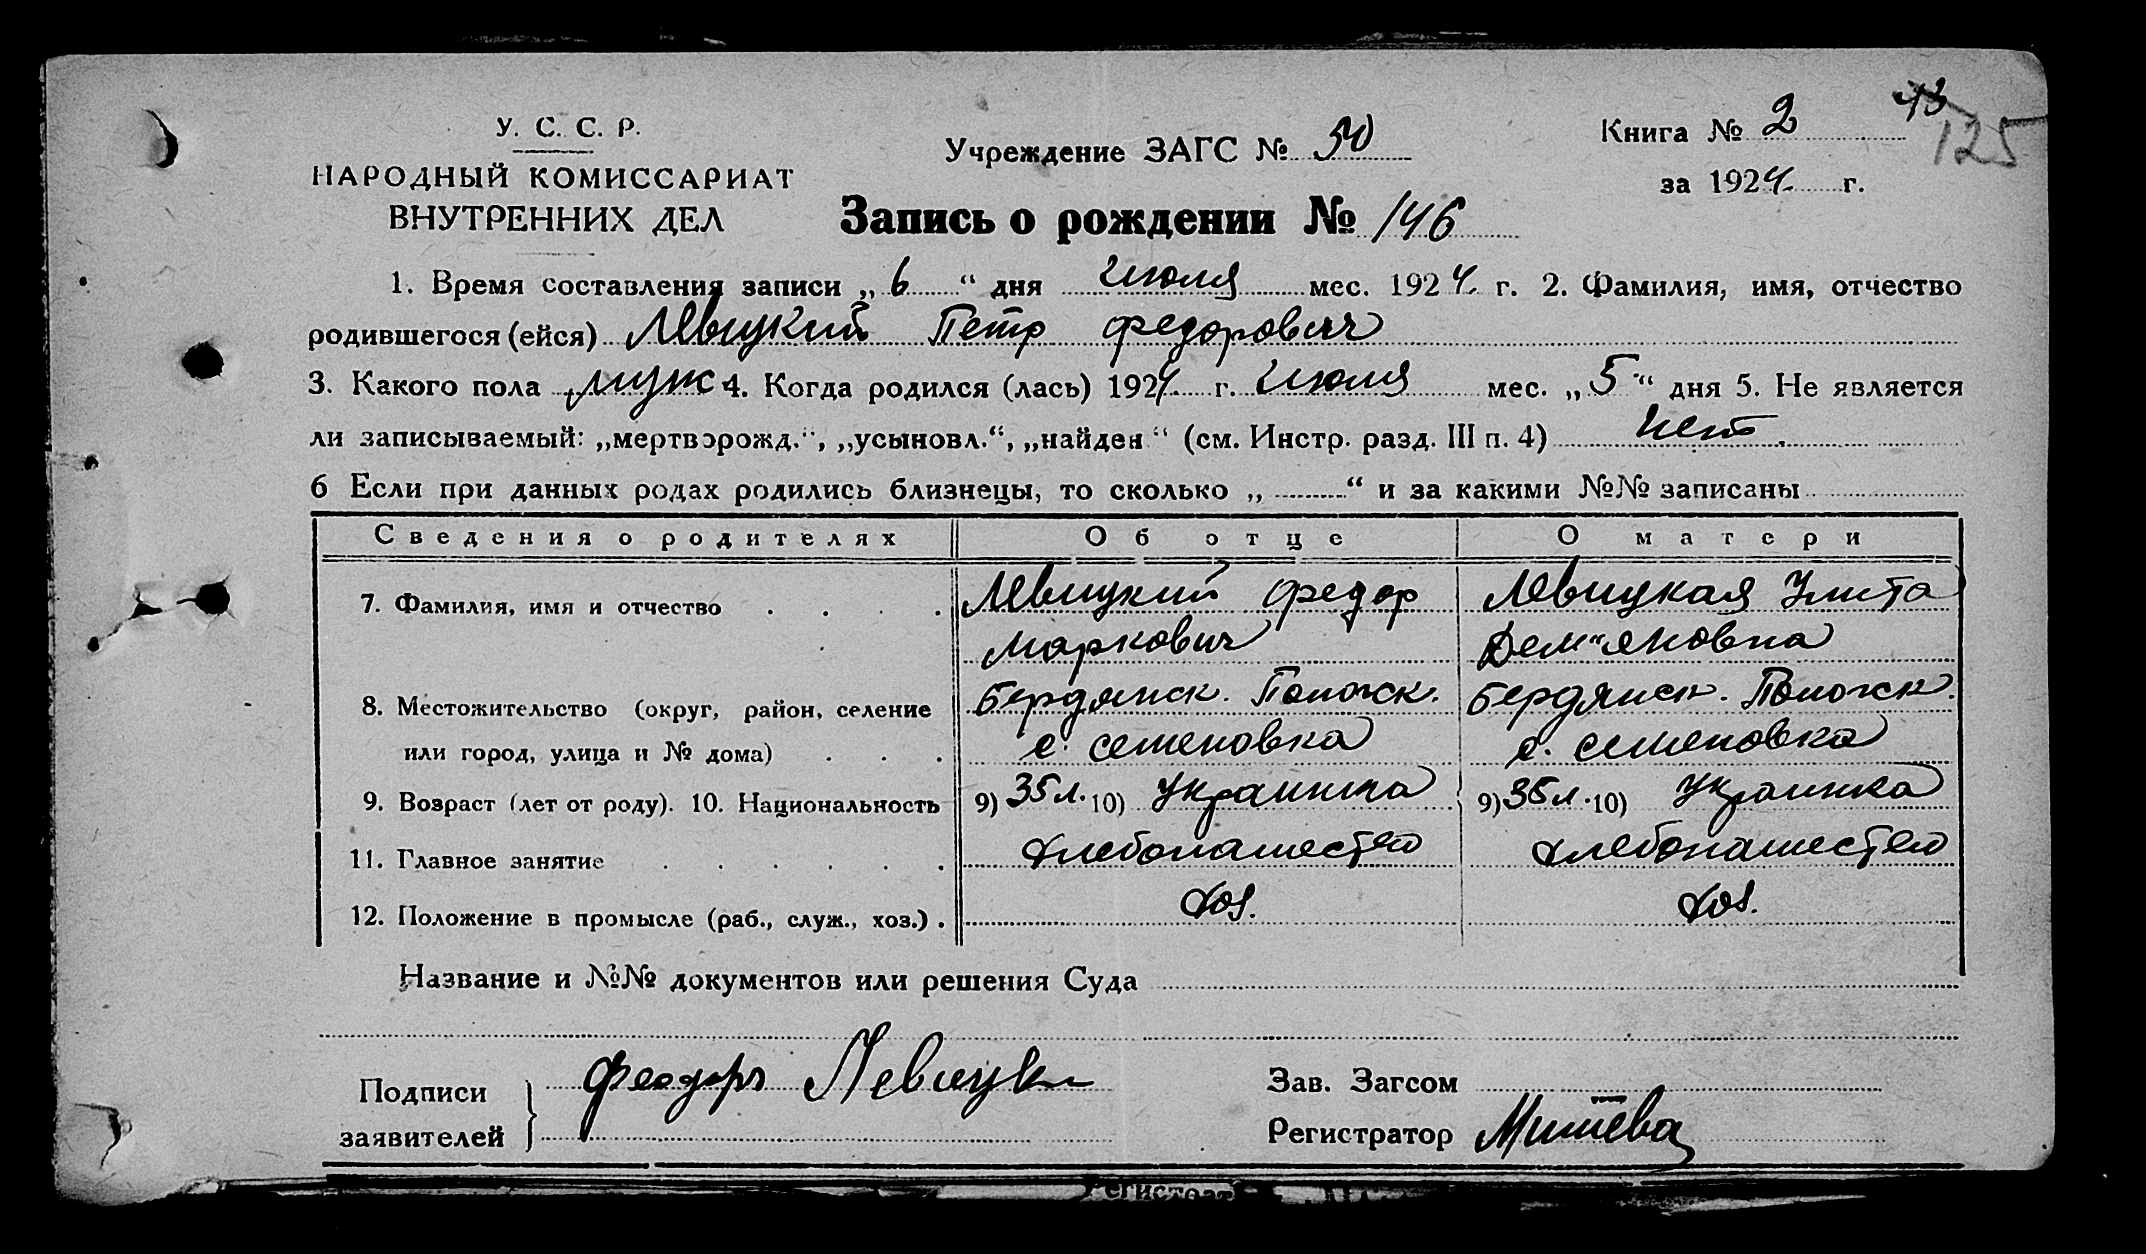 У. С. С. Р.
НАРОДНЫЙ КОМИССАРИАТ
ВНУТРЕННИХ ДЕЛ
Учреждение ЗАГС № 50
Книга № 2
43
125
за 1924 г.
Запись о рождении № 146
1. Время составления записи „ 6 “ дня июля мес. 1924 г. 2. Фамилия, имя, отчество
родившегося (ейся) Левицкий Петр Федорович
3. Какого пола муж 4. Когда родился (лась) 1924 г. июля мес. „ 5 “ дня 5. Не является
ли записываемый: „мертворожд.“, „усыновл.“, „найден“ (см. Инстр. разд. III п. 4) нет.
6 Если при данных родах родились близнецы, то сколько „ “ и за какими №№ записаны
Сведения о родителях Об отце О матери
7. Фамилия, имя и отчество Левицкий Федор Левицкая Улита
Маркович Дем"яновна
8. Местожительство (округ, район, селение Бердянск. Пологск. Бердянск. Пологск.
или город, улица и № дома) с. Семеновка с. Семеновка
9. Возраст (лет от роду). 10. Национальность 9) 35 л. 10) Украинка 9) 35 л. 10) Украинка
11. Главное занятие хлебопашество хлебопашество
12. Положение в промысле (раб., служ., хоз.) хоз. хоз.
Название и №№ документов или решения Суда
Подписи
заявителей
Феодоръ Левицки
Зав. Загсом
Регистратор